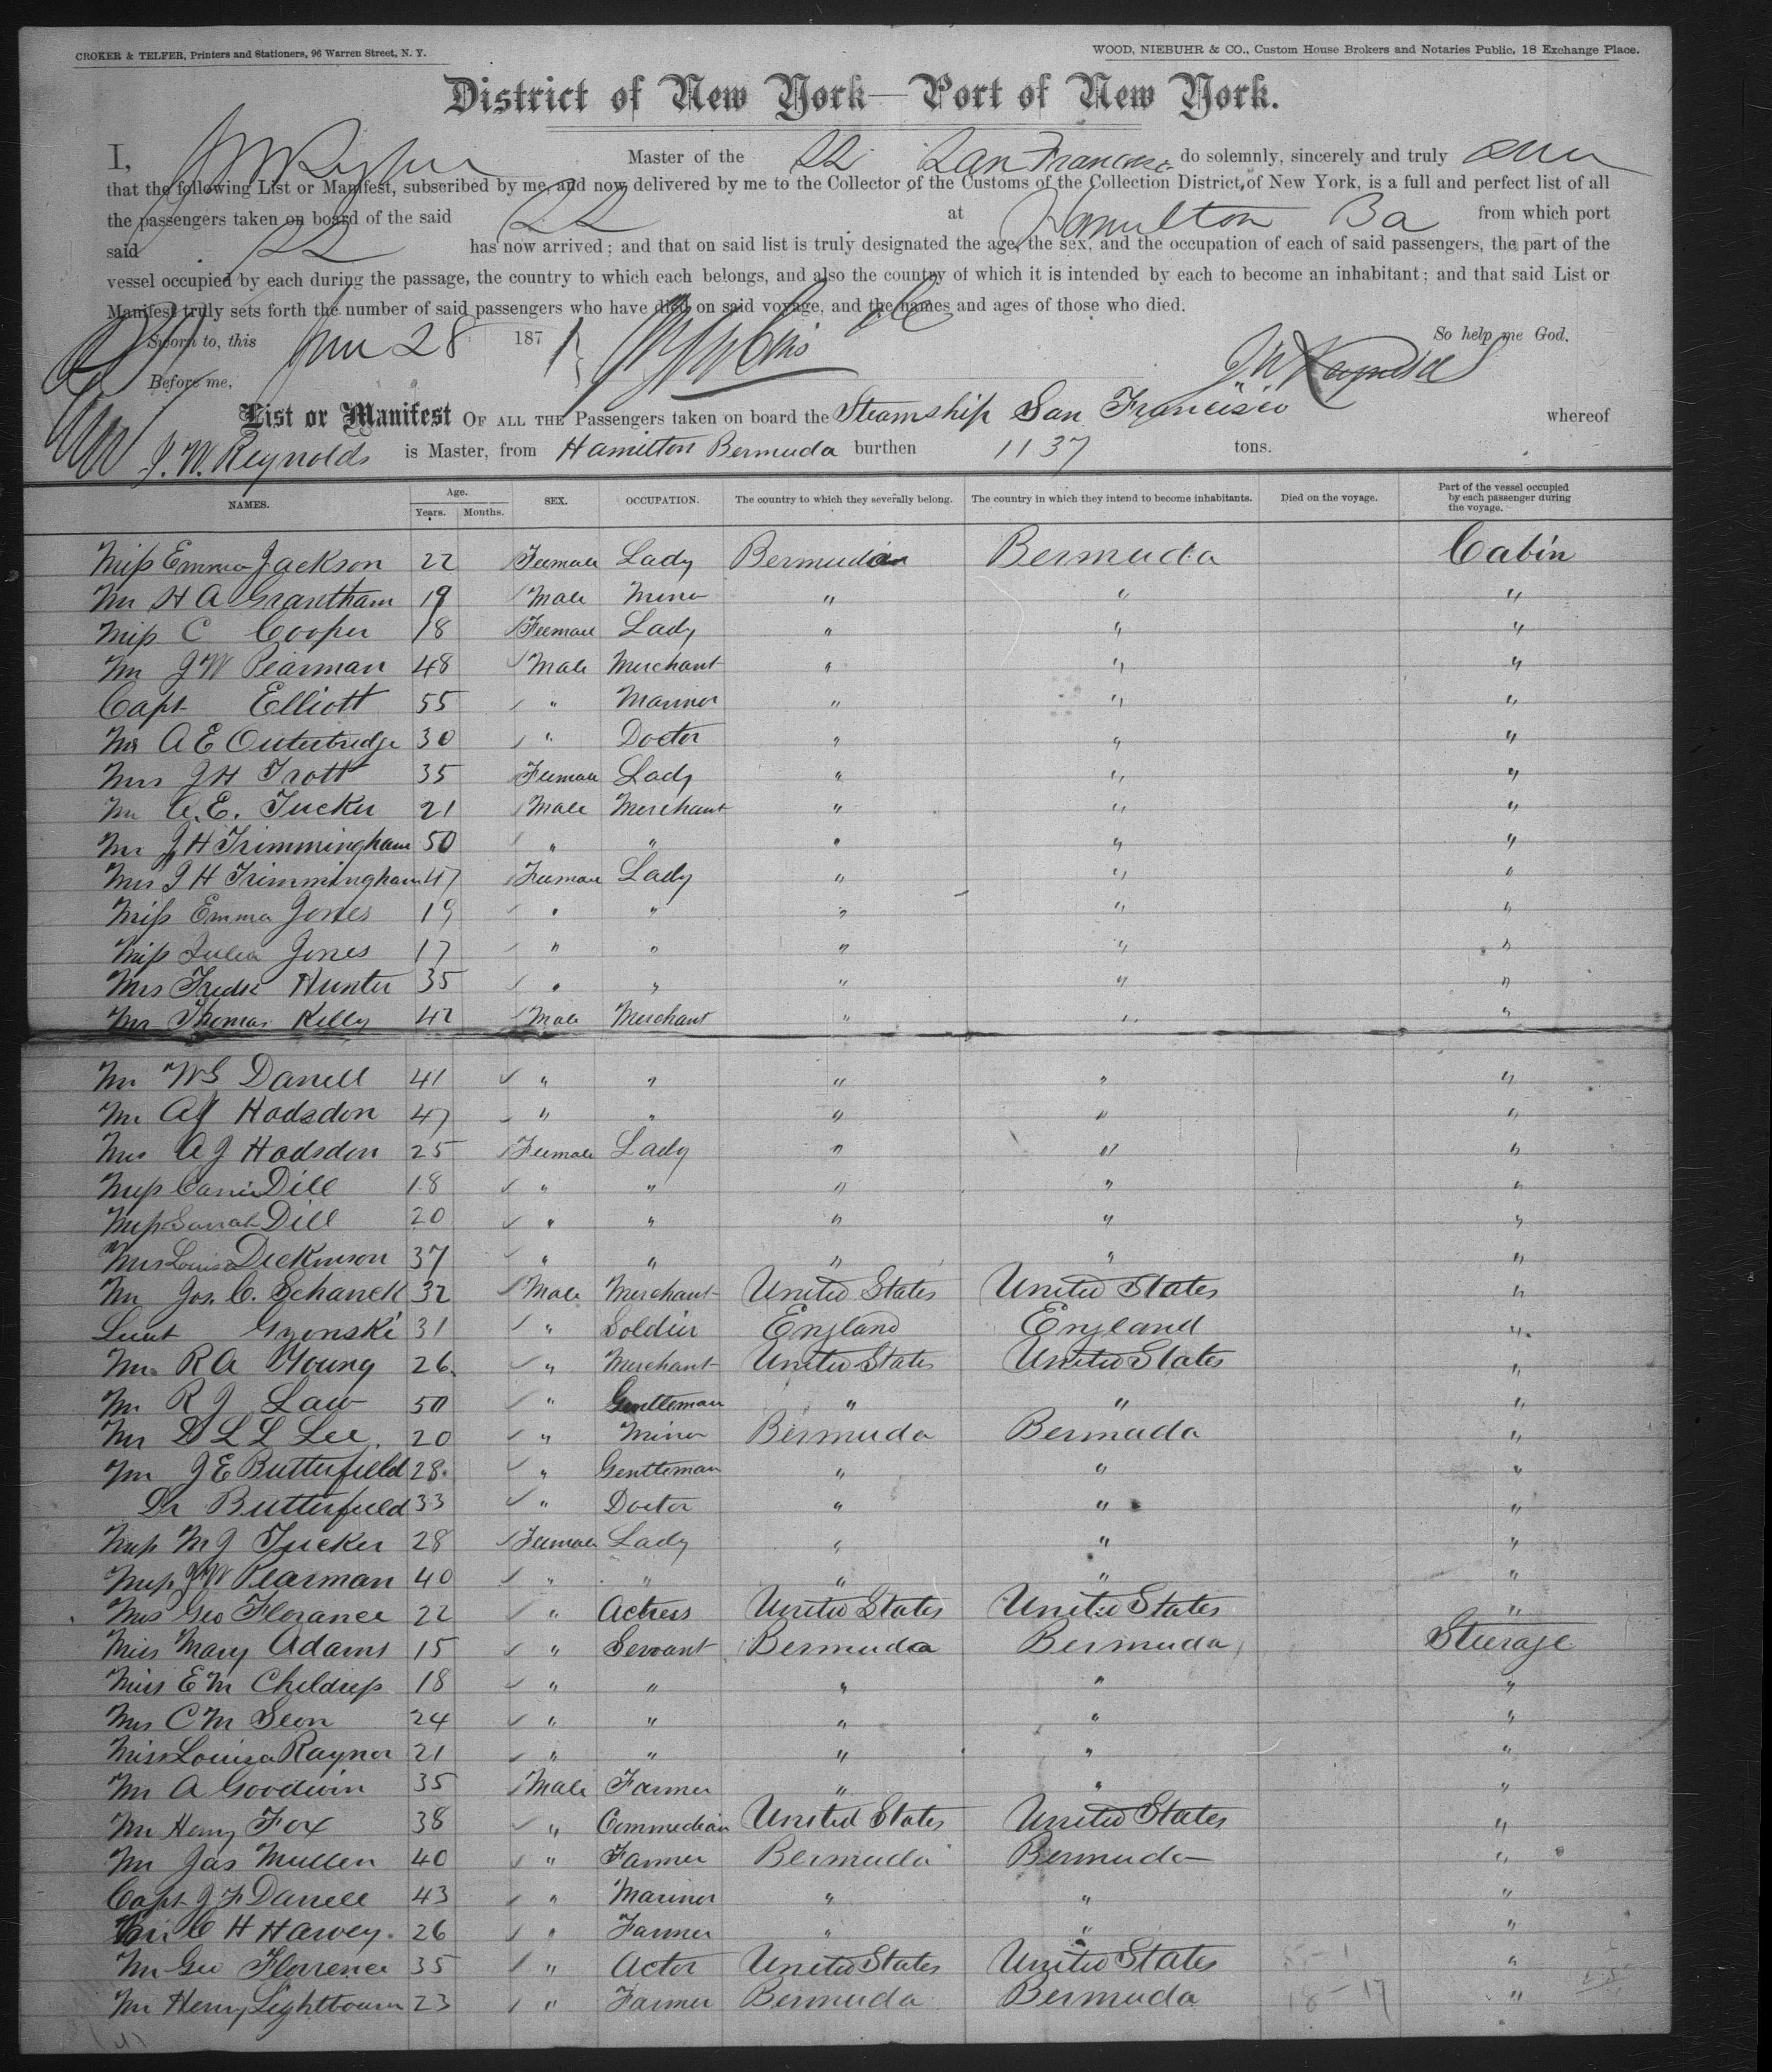 CROKER & TELFER, Printers and Stationers, 96 Warren Street, N. Y.
WOOD, NIEBUHR & CO., Custom House Brokers and Notaries Public, 18 Exchange Place.
District of New York—Port of New York.
I, Master of the SS San Francisco do solemnly, sincerely and truly
that the following List or Manifest, subscribed by me, and now delivered by me to the Collector of the Customs of the Collection District, of New York, is a full and perfect list of all
the passengers taken on board of the said SS at Hamilton Ba from which port
said SS has now arrived; and that on said list is truly designated the age, the sex, and the occupation of each of said passengers, the part of the
vessel occupied by each during the passage, the country to which each belongs, and also the country of which it is intended by each to become an inhabitant; and that said List or
Manifest truly sets forth the number of said passengers who have died on said voyage, and the names and ages of those who died.
Sworn to, this 28 187 So help me God.
Before me,
List or Manifest OF ALL THE Passengers taken on board the Steamship San Francisco whereof
J. W. Reynolds is Master, from Hamilton Bermuda burthen 1137 tons.
NAMES. Age. Years. Months. SEX. OCCUPATION. The country to which they severally belong. The country in which they intend to become inhabitants. Died on the voyage. Part of the vessel occupied by each passenger during the voyage.
Miss Emma Jackson 22 Feemale Lady Bermudian Bermuda Cabin
Mr H A Grantham 19 Male Minor " " "
Miss C Cooper 18 Feemale Lady " " "
Mr J W Pearman 48 Male Merchant " " "
Capt Elliott 55 " Marinor " " "
Mr A E Outerbridge 30 " Doctor " " "
Mrs J H Trott 35 Feemale Lady " " "
Mr A. E. Tucker 21 Male Merchant " " "
Mr J H Trimmingham 50 " " " " "
Mrs J H Trimmingham 47 Feemale Lady " " "
Miss Emma Jones 19 " " " " "
Miss Julia Jones 17 " " " " "
Mrs Fredk Hunter 35 " " " " "
Mr Thomas Kelly 42 Male Merchant " " "
Mr W S Darrell 41 " " " " "
Mr A J Hodsdon 47 " " " " "
Mrs A J Hodsdon 25 Feemale Lady " " "
Miss Carrie Dill 18 " " " " "
Miss Sarrah Dill 20 " " " " "
Mrs Louisa Dickinson 37 " " " " "
Mr Jos. C. Schanck 32 Male Merchant United States United States "
Lieut 31 " Soldier England England "
Mr R A Young 26 " Merchant United States United States "
Mr R J Law 50 " Gentleman " " "
Mr D L L Lee 20 " Minor Bermuda Bermuda "
Mr J E Butterfield 28 " Gentleman " " "
Dr Butterfield 33 " Doctor " " "
Miss M J Tucker 28 Feemale Lady " " "
Miss J W Pearman 40 " " " " "
Mrs Geo Florance 22 " Actress United States United States "
Miss Mary Adams 15 " Servant Bermuda Bermuda Steerage
Miss E M 18 " " " " "
Mrs C M Seon 24 " " " " "
Miss Louisa Raynor 21 " " " " "
Mr A Goodwin 35 Male Farmer " " "
Mr Henry Fox 38 " Commedian United States United States "
Mr Jas Mullen 40 " Farmer Bermuda Bermuda "
Capt J F Darrell 43 " Marinor " " "
C H Harvey 26 " Farmer " " "
Mr Geo Florence 35 " Actor United States United States "
Mr Henry Lightbourn 23 " Farmer Bermuda Bermuda "